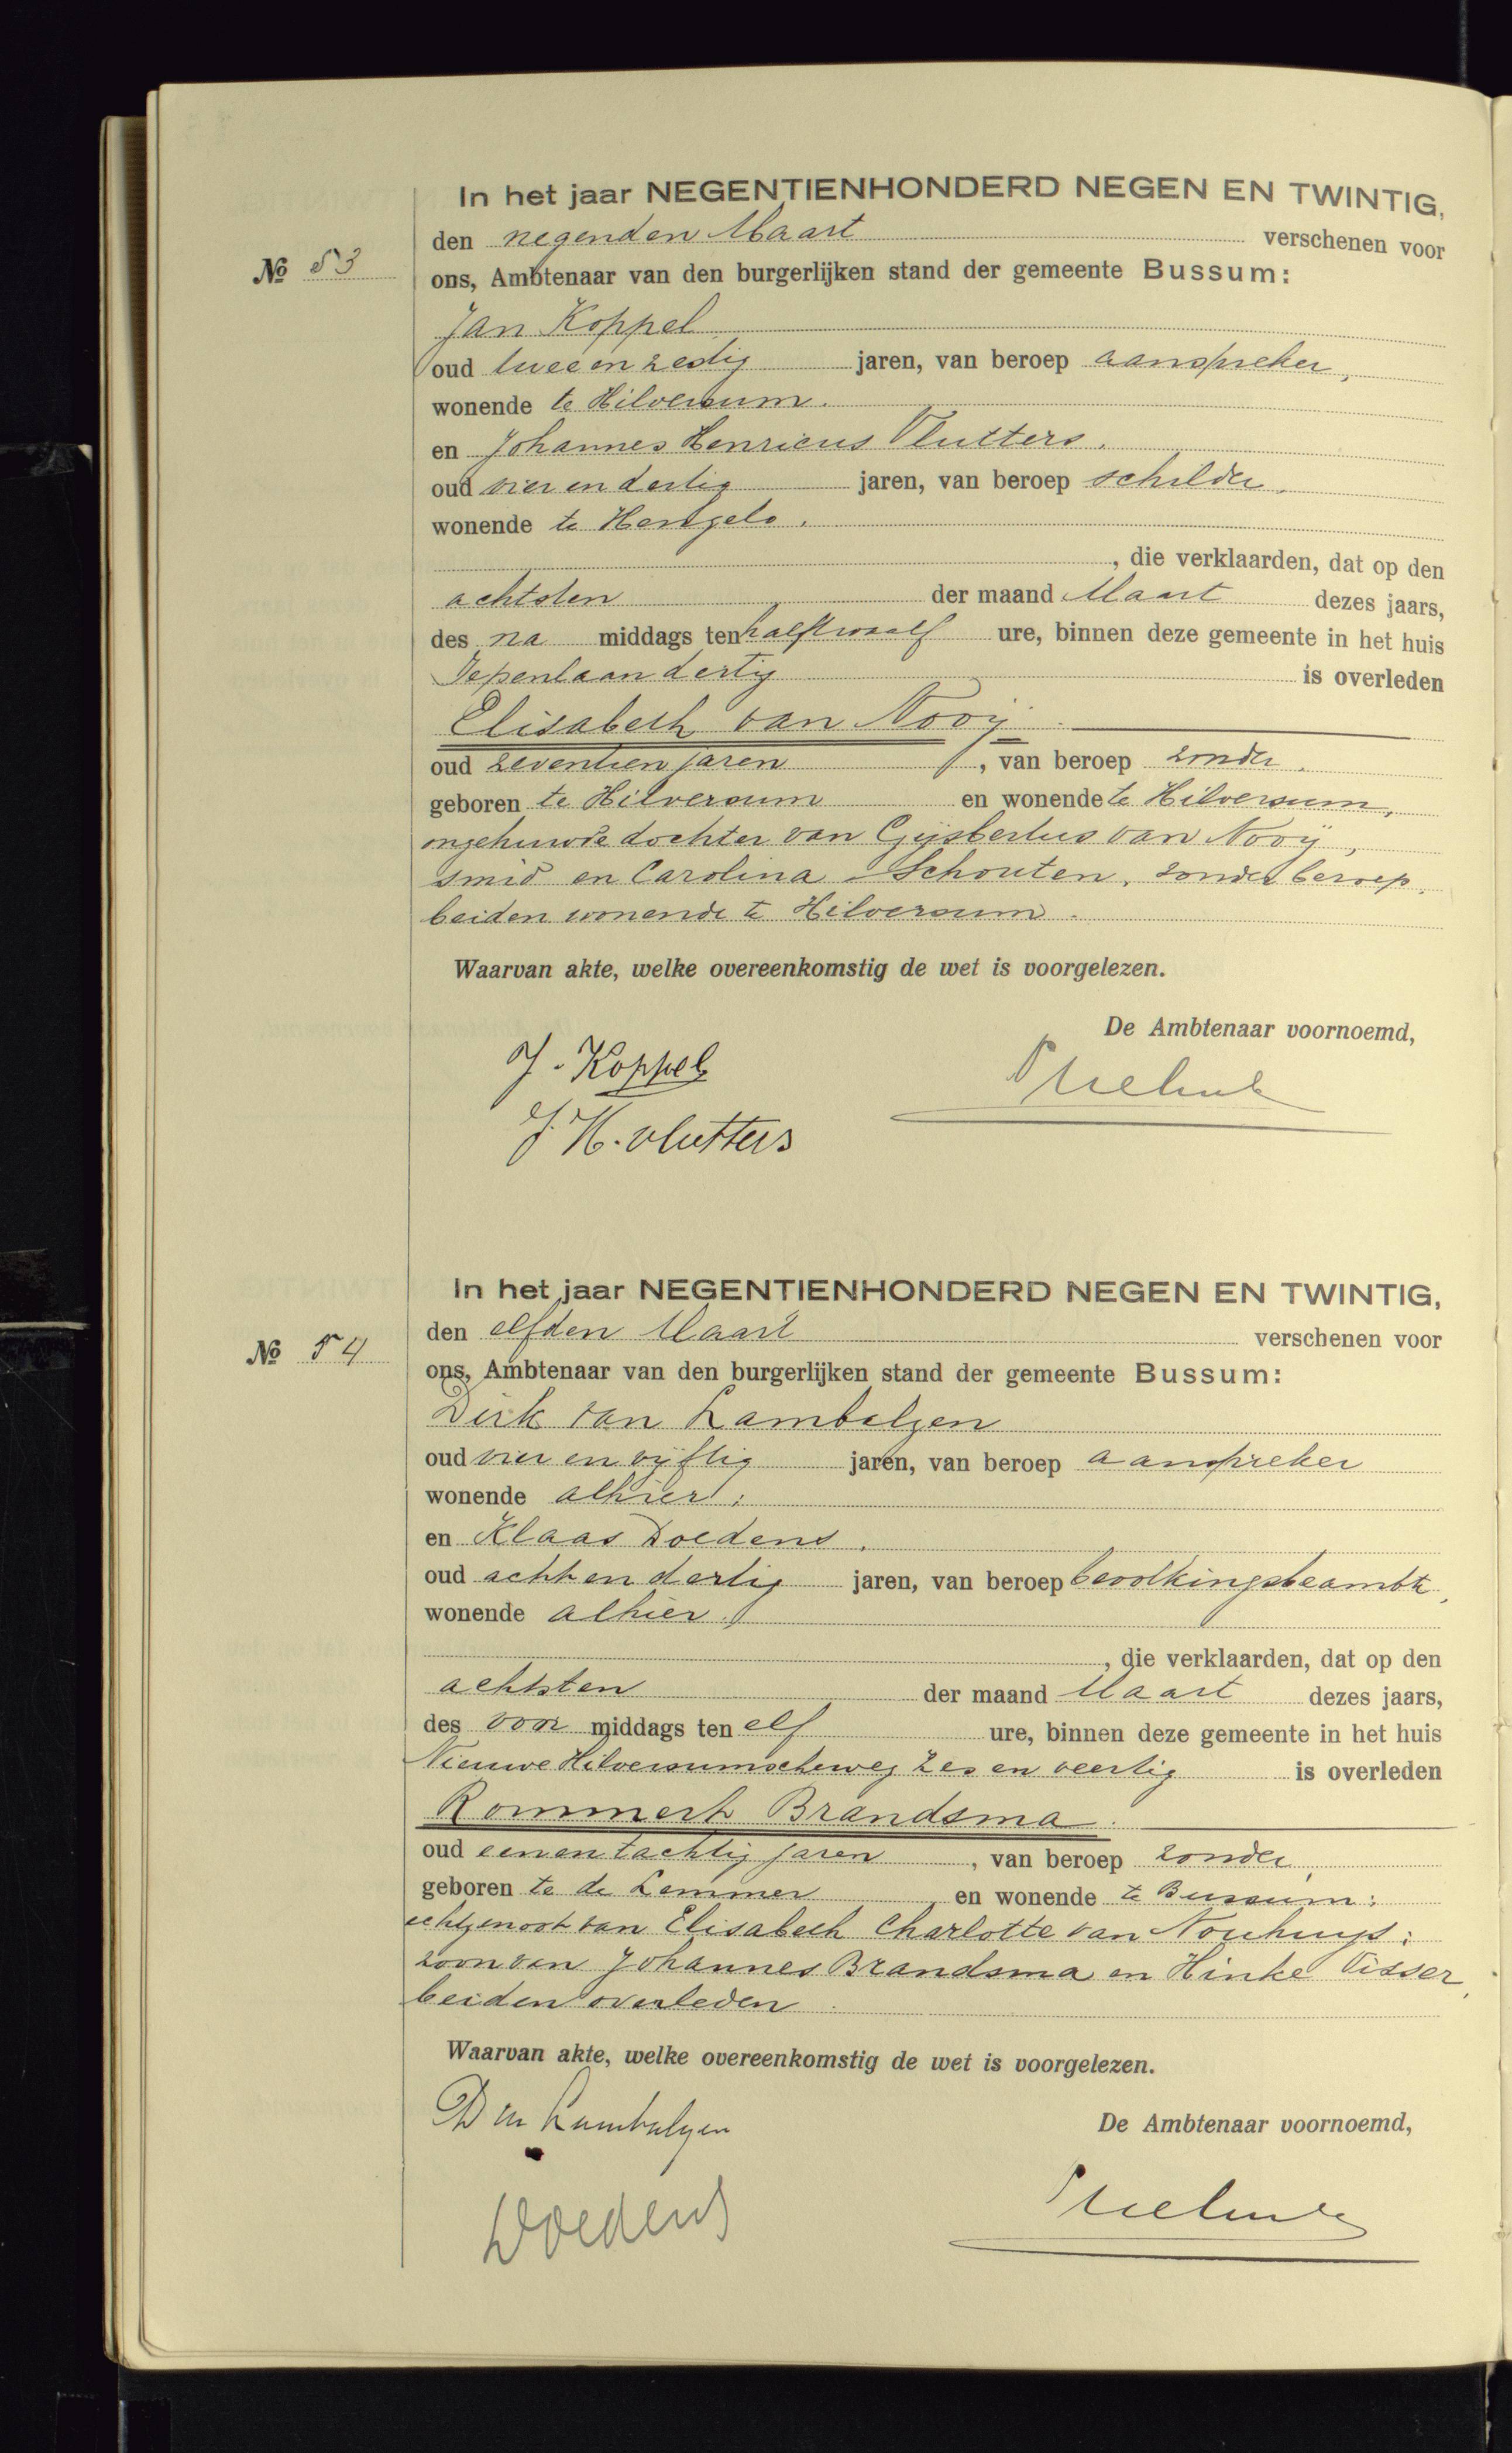 In het jaar NEGENTIENHONDERD NEGEN EN TWINTIG,
den negenden Maart verschenen voor
№ 53
ons, Ambtenaar van den burgerlijken stand der gemeente Bussum:
Jan Koppel
oud twee en zestig jaren, van beroep aanspreker,
wonende te Hilversum.
en Johannes Henricus Vlutters,
oud vier en dertig jaren, van beroep schilder,
wonende te Hengelo,
, die verklaarden, dat op den
achtsten der maand Maart dezes jaars,
des na middags ten halftwaalf ure, binnen deze gemeente in het huis
Iepenlaan dertig is overleden
Elisabeth van Nooij
oud zeventien jaren, van beroep zonder,
geboren te Hilversum en wonende te Hilversum,
ongehuwde dochter van Gijsbertus van Nooij,
smid en Carolina Schouten, zonder beroep,
beiden wonende te Hilversum.
Waarvan akte, welke overeenkomstig de wet is voorgelezen.
De Ambtenaar voornoemd,
J. Koppel
J. H. Vlutters
In het jaar NEGENTIENHONDERD NEGEN EN TWINTIG,
den elfden Maart verschenen voor
№ 54
ons, Ambtenaar van den burgerlijken stand der gemeente Bussum:
Dirk van Lambalgen
oud vier en vijftig jaren, van beroep aanspreker
wonende alhier;
en Klaas Doedens,
oud acht en dertig jaren, van beroep bevolkingsbeambte,
wonende alhier,
, die verklaarden, dat op den
achtsten der maand Maart dezes jaars,
des voor middags ten elf ure, binnen deze gemeente in het huis
Nieuwe Hilversumscheweg zes en veertig is overleden
Rommert Brandsma
oud een en tachtig jaren, van beroep zonder,
geboren te de Lemmer en wonende te Bussum;
echtgenoot van Elisabeth Charlotte van Nouhuys;
zoon van Johannes Brandsma en Hinke Visser,
beiden overleden.
Waarvan akte, welke overeenkomstig de wet is voorgelezen.
De Ambtenaar voornoemd,
D van Lambalgen
Doedens